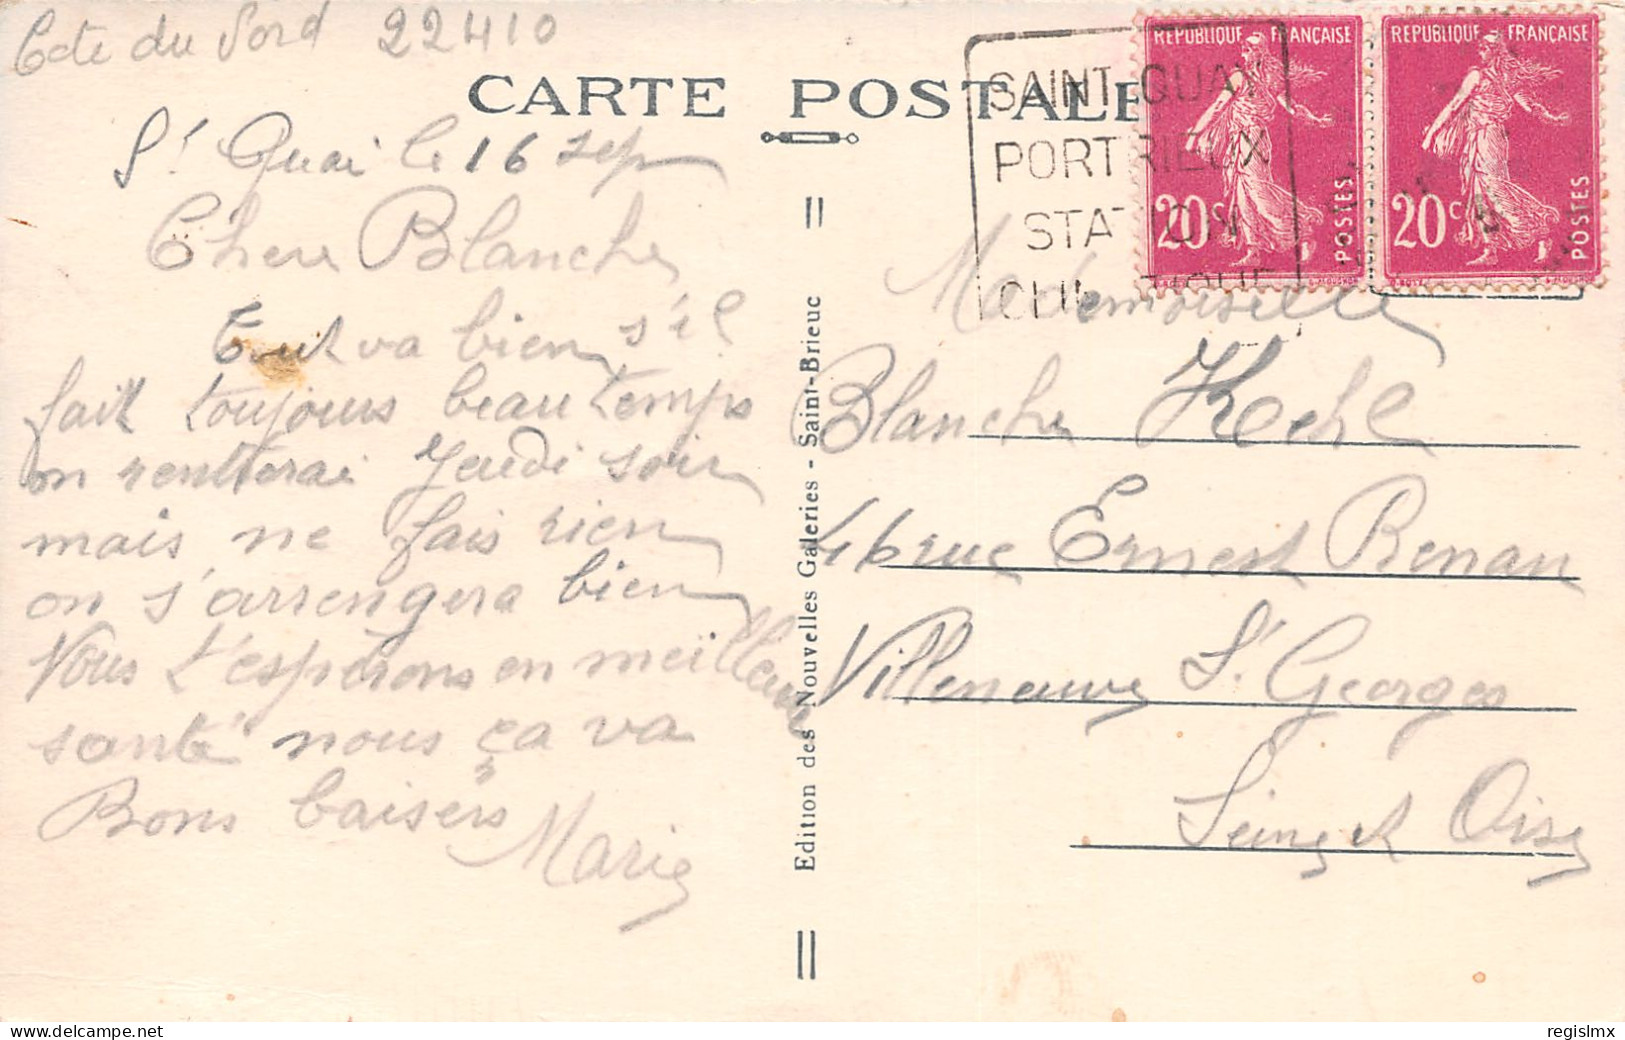 Cote du Nord 22410
CARTE POSTALE
SAINT-QUAY
PORTRIEUX
STATION
REPUBLIQUE FRANÇAISE
20c
POSTES
REPUBLIQUE FRANÇAISE
20c
POSTES
St Quai le 16 sep
Chere Blanche
Tout va bien s'il
fait toujours beau temps
on rentrerai Jeudi soir
mais ne fais rien
on s'arrengera bien
Nous t'espérons en meilleure
santé nous ça va
Bons baisers
Marie
Edition des Nouvelles Galeries - Saint-Brieuc
Mademoiselle
Blanche Kehl
46 rue Ernest Renan
Villeneuve St Georges
Seine et Oise
www.delcampe.net
regislmx